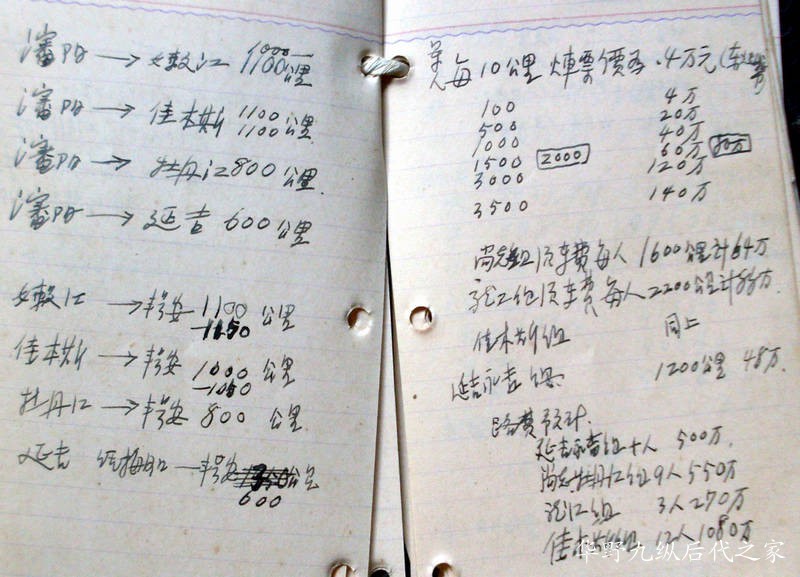 瀋阳→嫩江 1000 1100公里
瀋阳→佳木斯 1100 1100公里
瀋阳→牡丹江800公里
瀋阳→延吉600公里
嫩江→安 1100 -1150 公里
佳木斯→安 1000 -1050 公里
牡丹江→安 800 公里
延吉 經梅口—安 600
每10公里 煉票價为.4万元
100 4万
500 20万
1000 40万
1500 2000 60万 80万
3000 120万
3500 140万
尚志組 车費每人1600公里計64万
龙江組 车費每人2200公里計88万
佳木斯組 同上
延吉永吉組 1200公里 48万
路費
延吉永吉組十人 500万
尚志牡丹江組9人550万
龙江組 3人270万
佳木斯組 12人1080万
华野九纵后代之家